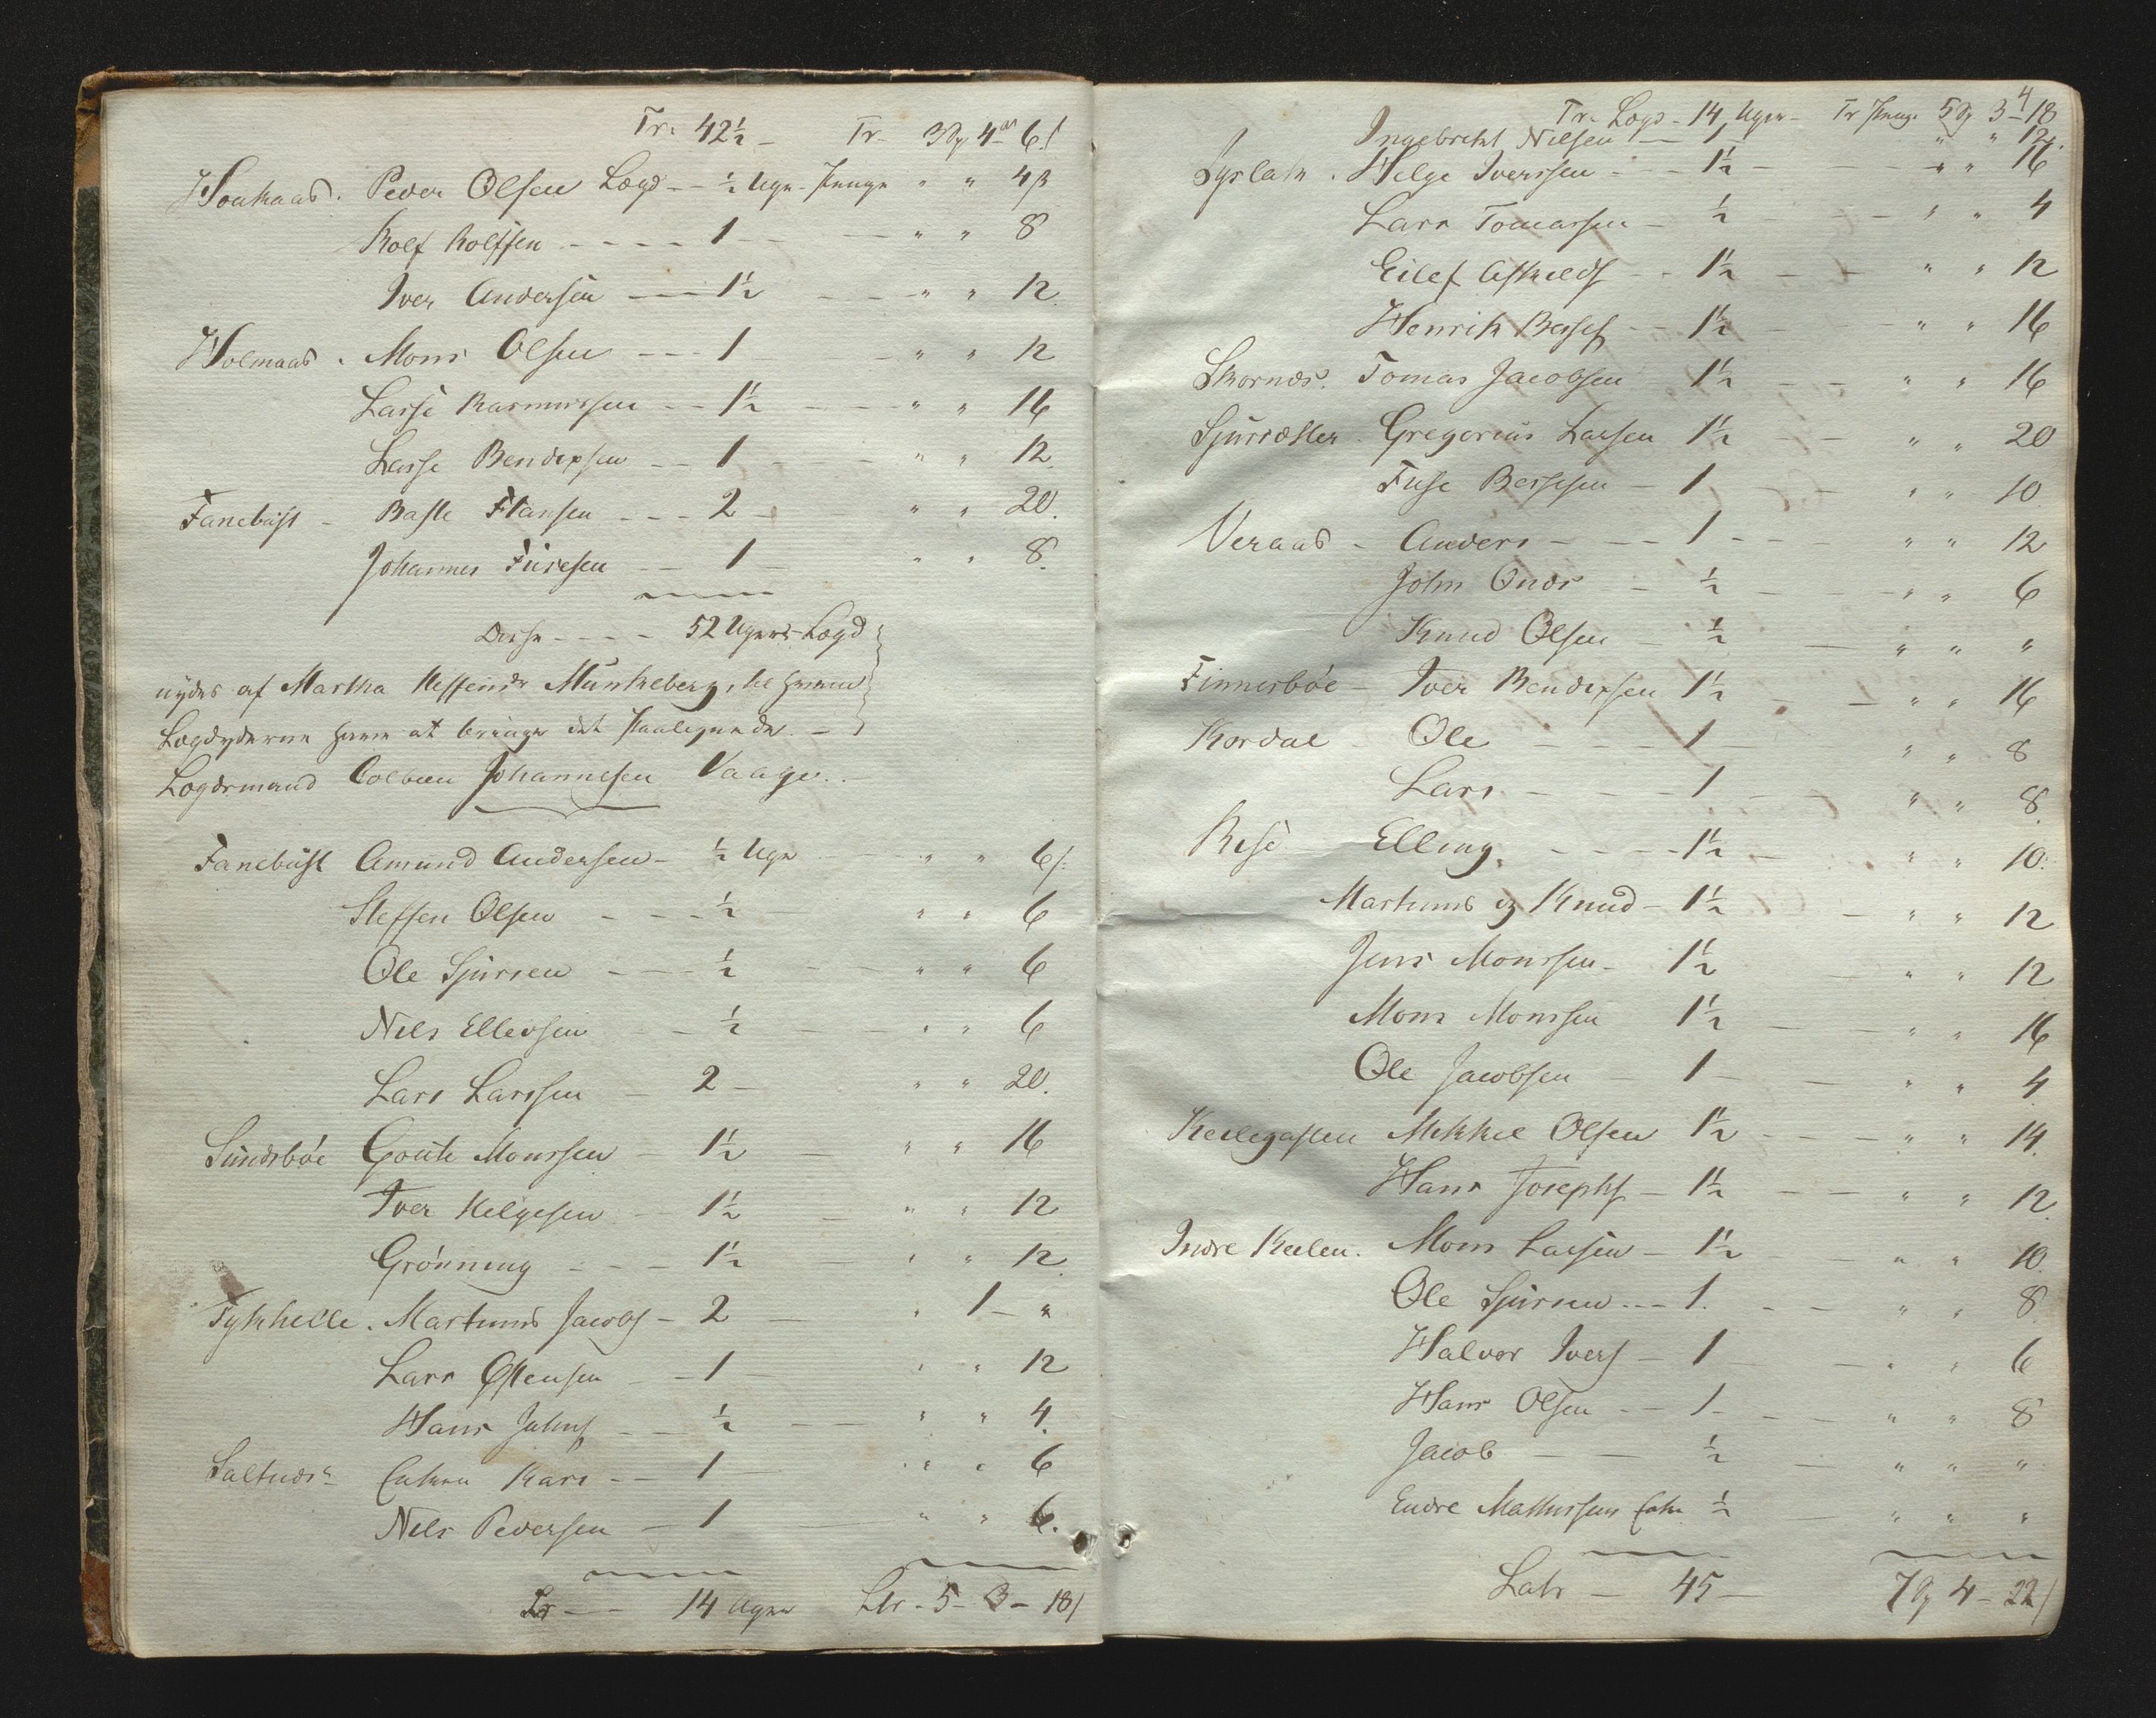 Tr. 42½ - Tr - 3 Sp 4 ort 6 ſ
Houkaas. Peder Olsen Lægd - ½ Uge - Penge " " 4 β
Rolf Rolfsen - - - - 1 - - " " 8
Iver Andersen - 1½ - - " " 12
Holmaas. Mons Olsen - - - 1 - " " 12
Lasse Rasmussen - - 1½ - - " " 16
Lasse Bendixsen - - 1 - - " " 12
Fanebust - Baste Hansen - - - 2 - " " 20.
Johannes Furesen - - 1 - " " 8.
Disse - - - - 52 Ugers Lægd
nydes af Martha Steffensdr Munkeberg, til hvem
Lægdyderne have at bringe det Paalignede. -
Lægdsmand Colbeen Johannesen Vaage..
Fanebust Amund Andersen - ½ Uge - " " 6 ſ:
Steffen Olsen - - - ½ " " 6
Ole Sjursen - - - ½ - - " " 6
Nils Ellevsen - ½ - - " " 6
Lars Larssen - 2 - " " 20.
Sundsbøe Goute Monssen - 1½ - " " 16
Iver Helgesen - 1½ - " " 12
Grønning - - - 1½ - " " 12.
Tykhelle. Martinus Jacobs - 2 - " 1 - "
Lars Østensen - - 1 - " " 12
Hans Johns - - ½ - - " " 4.
Saltnæs - Enken Kari - - 1 - " " 6
Nils Pedersen - 1 - " " 6.
Lr - - 14 Uger Ltr - 5 - 3 - 18 ſ
Tr. Lægd - 14 Uger - Tr Penge 5 Sp 3 - 18
4
Ingebrikt Nilsen - 1 " " 12.
Helge Iverssen - - - 1½ - - " " 16
Lars Tomassen - ½ - - " " 4
Eilef Askelds - - 1½ - - " " 12
Henrik Berses - - 1½ - - " " 16
Skornes. Tomas Jacobsen 1½ - - " " 16
Gregorius Larsen 1½ - - " " 20
Fuse Bersesen - 1 - " " 10
Veraas - Anders - - - 1 - - - " " 12
John Onds - ½ - - " " 6
Knud Olsen - ½ - " " "
Finnesbøe - Iver Bendixsen 1½ - - " " 16
Kordal - Ole - - - 1 - " " 8
Lars - - - 1 - - " " 8.
Rese Elling - - - - 1½ - " " 10.
Martinus og Knud - 1½ - " " 12
Jens Monssen - 1½ - " " 12
Mons Monssen 1½ - - " " 16
Ole Jacobsen - 1 - - " " 4
Keilegasten Mikkel Olsen 1½ - - - " " 14.
Hans Josephs - 1½ - - " " 12.
Indre Keilen. Mons Larsen - 1½ - " " 10.
Ole Sjursen - - - 1. - - " " 8.
Halvor Ivers - 1 - " " 6
Hans Olsen - - 1 - - - " " 8
Jacob - - ½ - " " "
Endre Mathissens Enke ½ - " " "
Latr - 45 - 7 Sp 4 - 22 ſ